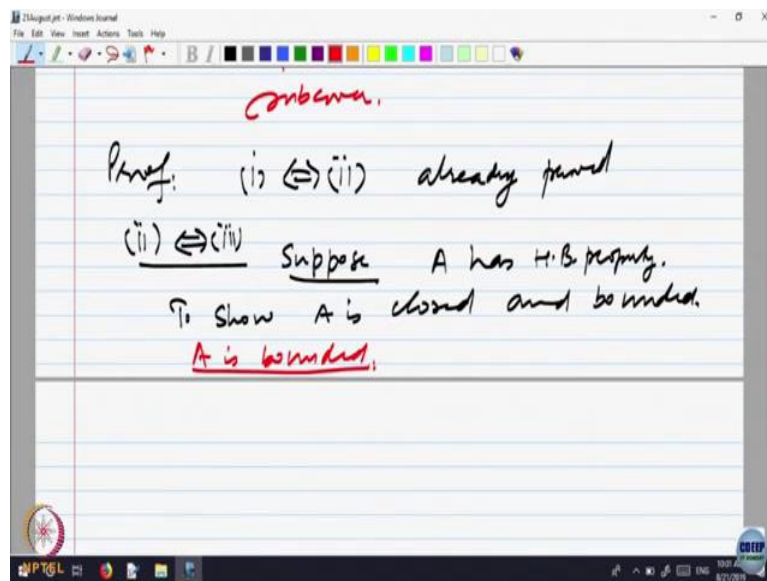 21August.jnt - Windows Journal
File Edit View Insert Actions Tools Help
subcover.
Proof: (i) ⇔ (ii) already proved
(ii) ⇔ (iii) Suppose A has H.B. property.
To show A is closed and bounded.
A is bounded.
NPTEL
CDEEP
ENG
8/21/2019